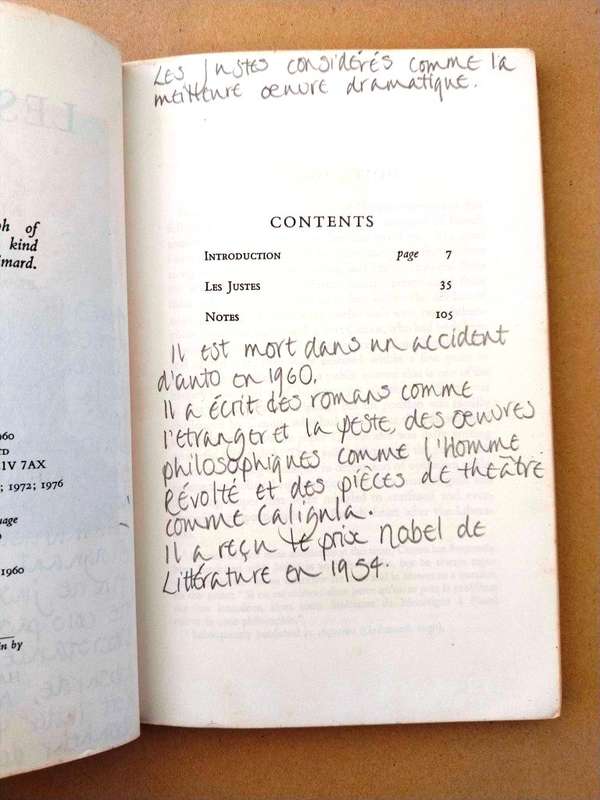 Les Justes considérés comme la
meilleure œuvre dramatique.
CONTENTS
INTRODUCTION page 7
LES JUSTES 35
NOTES 105
Il est mort dans un accident
d'auto en 1960.
Il a écrit des romans comme
l'etranger et la peste, des œuvres
philosophiques comme l'Homme
Révolté et des pièces de theâtre
comme Caligula.
Il a reçu le prix Nobel de
Littérature en 1954.
LES
ph of
kind
imard.
960
TD
1V 7AX
; 1972; 1976
uage
1960
in by